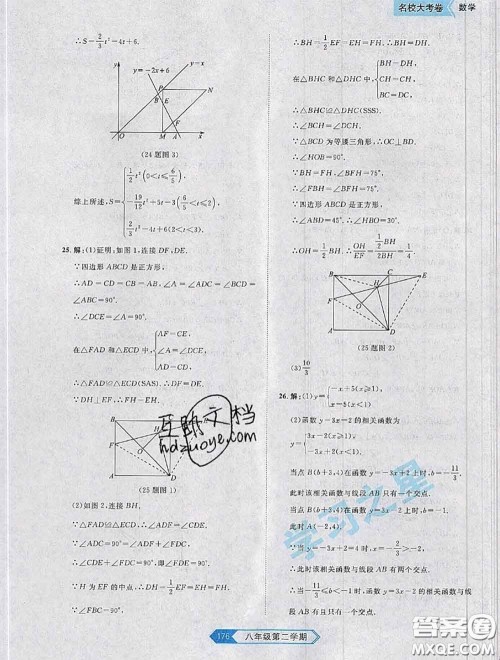 名校大考卷 数学
∴S=-2/3t²-4t+6.
y=-2x+6
y=x
(24题图3)
综上所述,S={1/2t²(0<t≤6/5)
-19/12t²+5t-3(6/5<t≤2)
2/3t²-4t+6(2<t<3).
25. 解:(1)证明:如图1,连接DF,DE.
∵四边形ABCD是正方形,
∴AD=CD=CB=AB,∠A=∠DCB=
∠ABC=90°.
∴∠DCE=90°=∠A.
在△FAD和△ECD中,{AF=CE,
∠A=∠DCE,
AD=CD,
∴△FAD≌△ECD(SAS).∴DF=DE.
∵DH⊥EF,∴FH=EH.
(25题图1)
(2)如图2,连接BH.
∵△FAD≌△ECD,
∴∠ADF=∠EDC.
∴∠FDE=∠EDC+∠FDC=∠ADF+∠FDC=
90°.
∵H为EF的中点,∴DH=1/2EF=EH=FH.
∵∠FBC=90°,
∴BH=1/2EF=EH=FH=DH.
在△BHC和△DHC中,{BH=DH,
CH=CH,
BC=DC,
∴△BHC≌△DHC(SSS).
∴∠BCH=∠DCH.
∵△BCD为等腰三角形,∴OC⊥BD.
∴∠BOH=90°.
∵BH=FH,∠BFH=75°,
∴∠FBH=∠BFH=75°.
∵∠ABD=45°,∴∠HBO=30°.
∴OH=1/2BH.∴OH/EF=1/2BH/2BH=1/4.
(25题图2)
(3)10/3
26. 解:(1)y={-x+5(x≥1),
x-5(x<1)
(2)函数y=-3x+2的相关函数为
y={-3x+2(x≥1),
3x-2(x<1).
当点B(b+3,4)在函数y=-3x+2上时,b=-11/3,
此时该相关函数与线段AB只有一个交点.
当点A(b,4)在函数y=-3x+2上时,
此时A(-2/3,4).
∴当-3x+2=4时,x=-2/3,
此时该相关函数与线段AB有一个交点.
∴当-11/3≤b<-2/3时,函数y=-3x+2的相关函数与线段
AB有且只有一个交点.
互助文档
hdzuoye.com
学习之星
176 八年级第二学期
答案圈
MXQE.COM